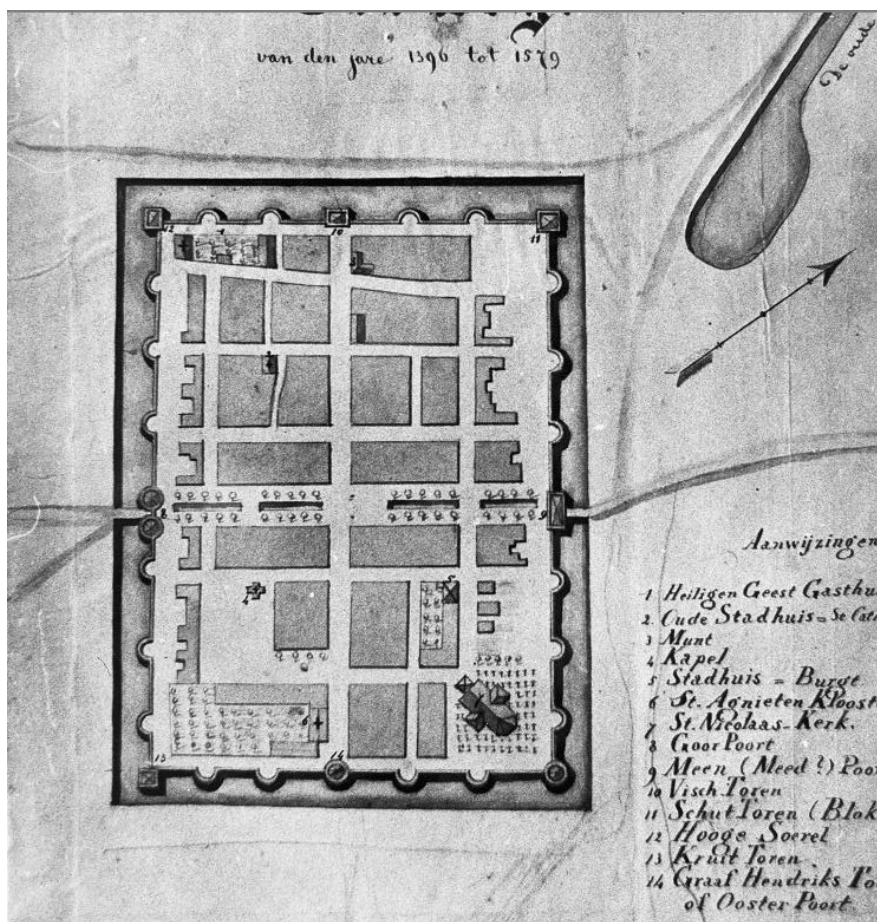 van den jare 1396 tot 1579
De oude
12
1
10
11
3
2
8
9
4
5
6
7
13
14
Aanwijzingen
1 Heiligen Geest Gasthu
2. Oude Stadhuis = St Cath
3 Munt
4 Kapel
5 Stadhuis = Burgt
6 St. Agnieten Kloost
7 St. Nicolaas-Kerk.
8 Goor Poort
9 Meen (Meed?) Poor
10 Visch Toren
11 Schut Toren (Blok
12 Hooge Soerel
13 Kruit Toren
14 Graaf Hendriks To
of Ooster Poort.